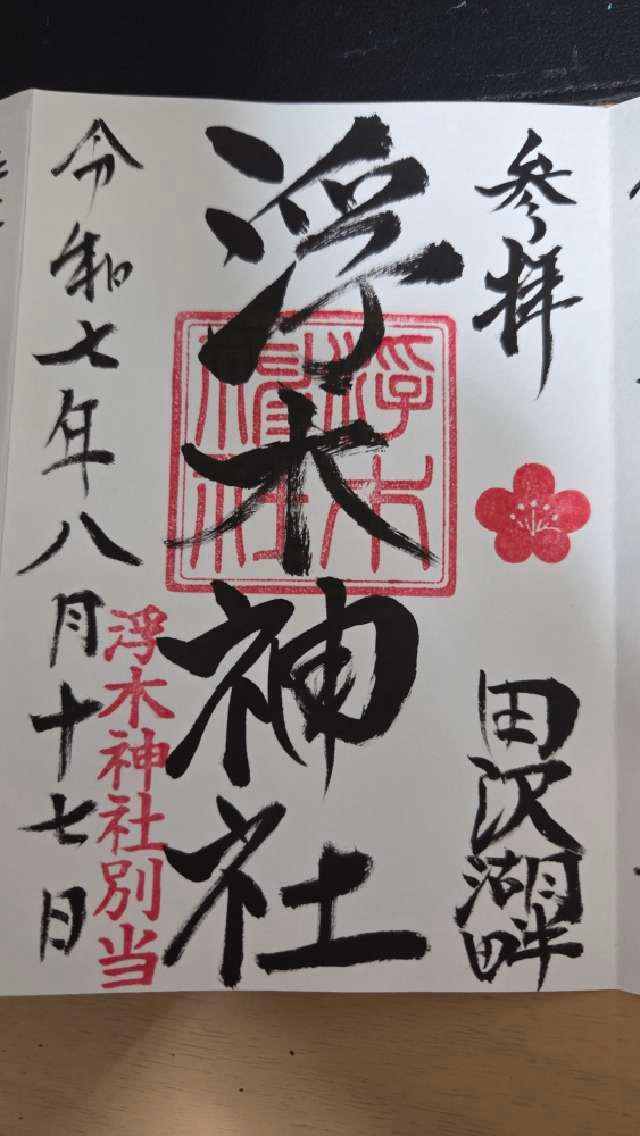 参拝
田沢湖畔
浮木神社
浮木
神社
令和七年八月十七日
浮木神社別当